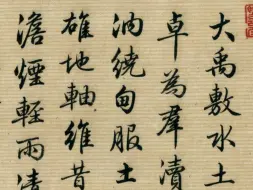 大禹敷水土
卓為羣瀆
汭繞甸服土
雄地軸維昔
澹煙輕雨清